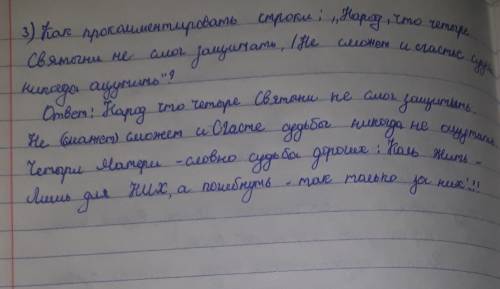 3) Как прокомментировать строки: „Народ, что четыре
Святыни не смог защитить, / Не сможет и счастье суд
никогда ощутить"?
Ответ: Народ что четыре Святыни не смог защитить.
Не (может) сможет и Счасте судьбы никогда не ощутить.
Четыри Матери - словно судьба дороних: Коль жить -
Лишь для НИХ, а погибнуть - так только за них!!!